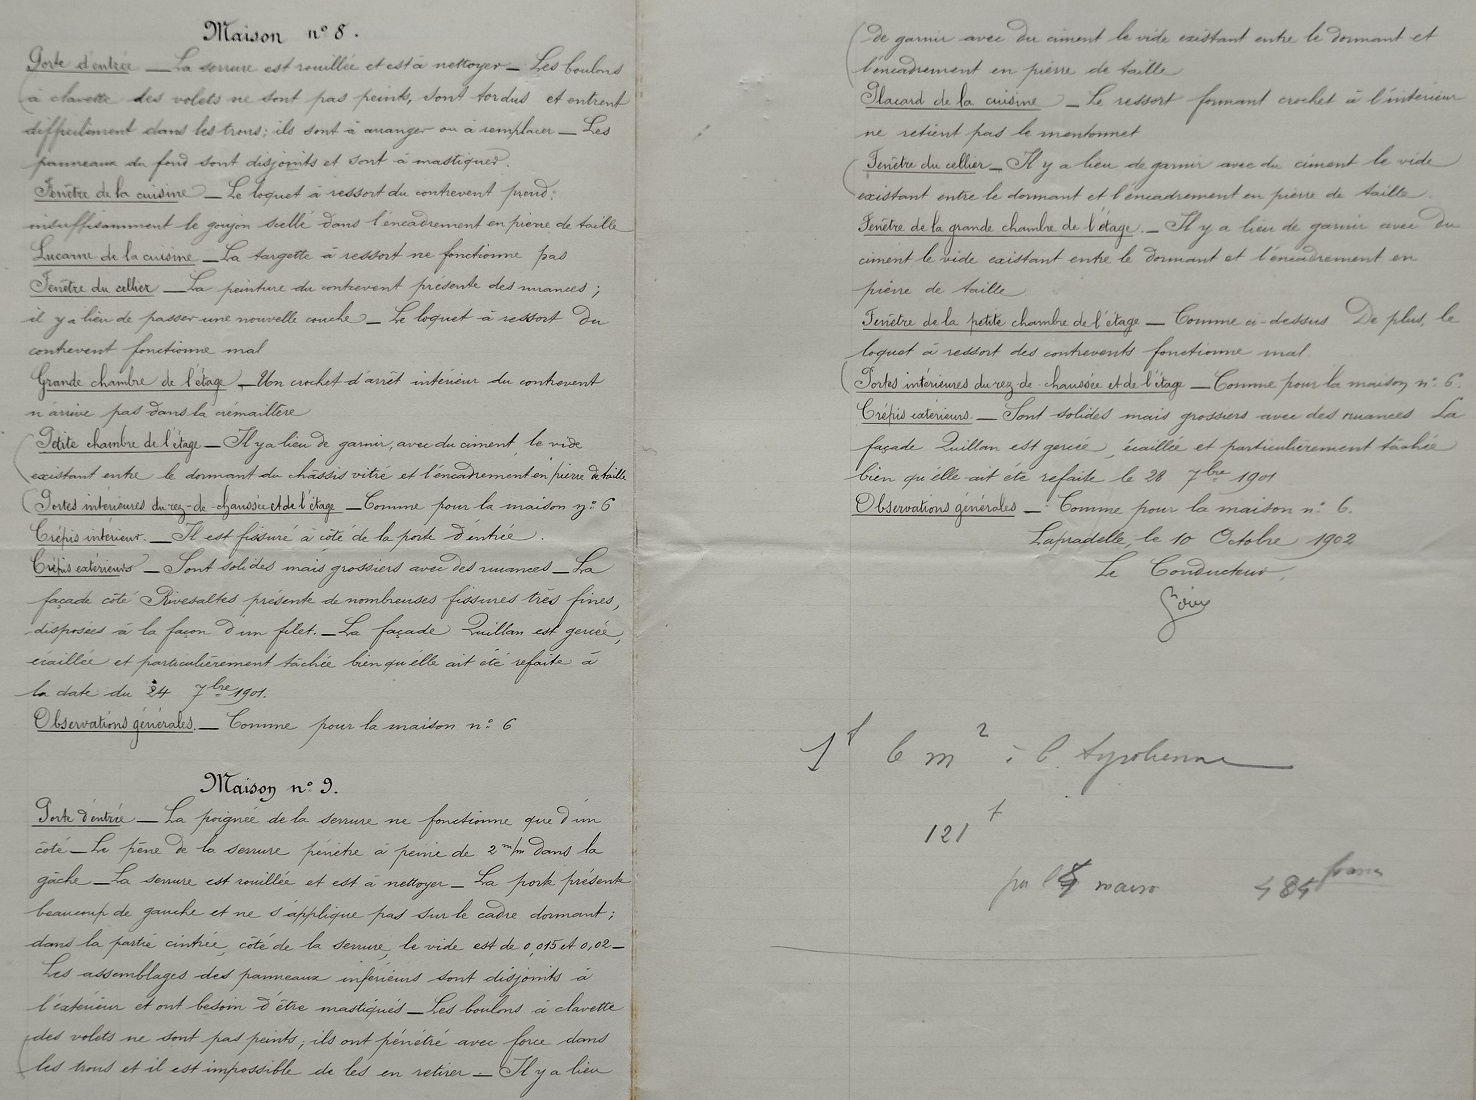 Maison n° 8.
Porte d'entrée — La serrure est rouillée et est à nettoyer — Les boulons
à clavette des volets ne sont pas peints, sont tordus et entrent
difficilement dans les trous; ils sont à arranger ou à remplacer — Les
panneaux du fond sont disjoints et sont à mastiquer.
Fenêtre de la cuisine — Le loquet à ressort du contrevent prend
insuffisamment le goujon scellé dans l'encadrement en pierre de taille
Lucarne de la cuisine — La targette à ressort ne fonctionne pas
Fenêtre du cellier — La peinture du contrevent présente des nuances;
il y a lieu de passer une nouvelle couche — Le loquet à ressort du
contrevent fonctionne mal
Grande chambre de l'étage — Un crochet d'arrêt intérieur du contrevent
n'arrive pas dans la crémaillère
Petite chambre de l'étage — Il y a lieu de garnir, avec du ciment, le vide
existant entre le dormant du châssis vitré et l'encadrement en pierre de taille
Portes intérieures du rez-de-chaussée et de l'étage — Comme pour la maison n° 6
Crépis intérieur. — Il est fissuré à côté de la porte d'entrée.
Crépis extérieurs — Sont solides mais grossiers avec des nuances — La
façade côté Rivesaltes présente de nombreuses fissures très fines,
disposées à la façon d'un filet. — La façade Quillan est gercée,
écaillée et particulièrement tâchée bien qu'elle ait été refaite à
la date du 24 7bre 1901.
Observations générales. — Comme pour la maison n° 6
Maison n° 9.
Porte d'entrée — La poignée de la serrure ne fonctionne que d'un
côté — Le pêne de la serrure pénètre à peine de 2 m/m dans la
gâche — La serrure est rouillée et est à nettoyer — La porte présente
beaucoup de gauche et ne s'applique pas sur le cadre dormant;
dans la partie cintrée, côté de la serrure, le vide est de 0,015 et 0,02 —
Les assemblages des panneaux inférieurs sont disjoints à
l'extérieur et ont besoin d'être mastiqués — Les boulons à clavette
des volets ne sont pas peints; ils ont pénétré avec force dans
les trous et il est impossible de les en retirer — Il y a lieu
de garnir avec du ciment le vide existant entre le dormant et
l'encadrement en pierre de taille
Placard de la cuisine — Le ressort formant crochet à l'intérieur
ne retient pas le mentonnet
Fenêtre du cellier — Il y a lieu de garnir avec du ciment le vide
existant entre le dormant et l'encadrement en pierre de taille.
Fenêtre de la grande chambre de l'étage. — Il y a lieu de garnir avec du
ciment le vide existant entre le dormant et l'encadrement en
pierre de taille
Fenêtre de la petite chambre de l'étage — Comme ci-dessus De plus, le
loquet à ressort des contrevents fonctionne mal.
Portes intérieures du rez-de-chaussée et de l'étage — Comme pour la maison n° 6.
Crépis extérieurs. — Sont solides mais grossiers avec des nuances La
façade Quillan est gercée, écaillée et particulièrement tâchée
bien qu'elle ait été refaite le 28 7bre 1901
Observations générales — Comme pour la maison n° 6.
Lapradelle, le 10 Octobre 1902
Le Conducteur,
1f le m2 à la tyrolienne
121 f
484 francs